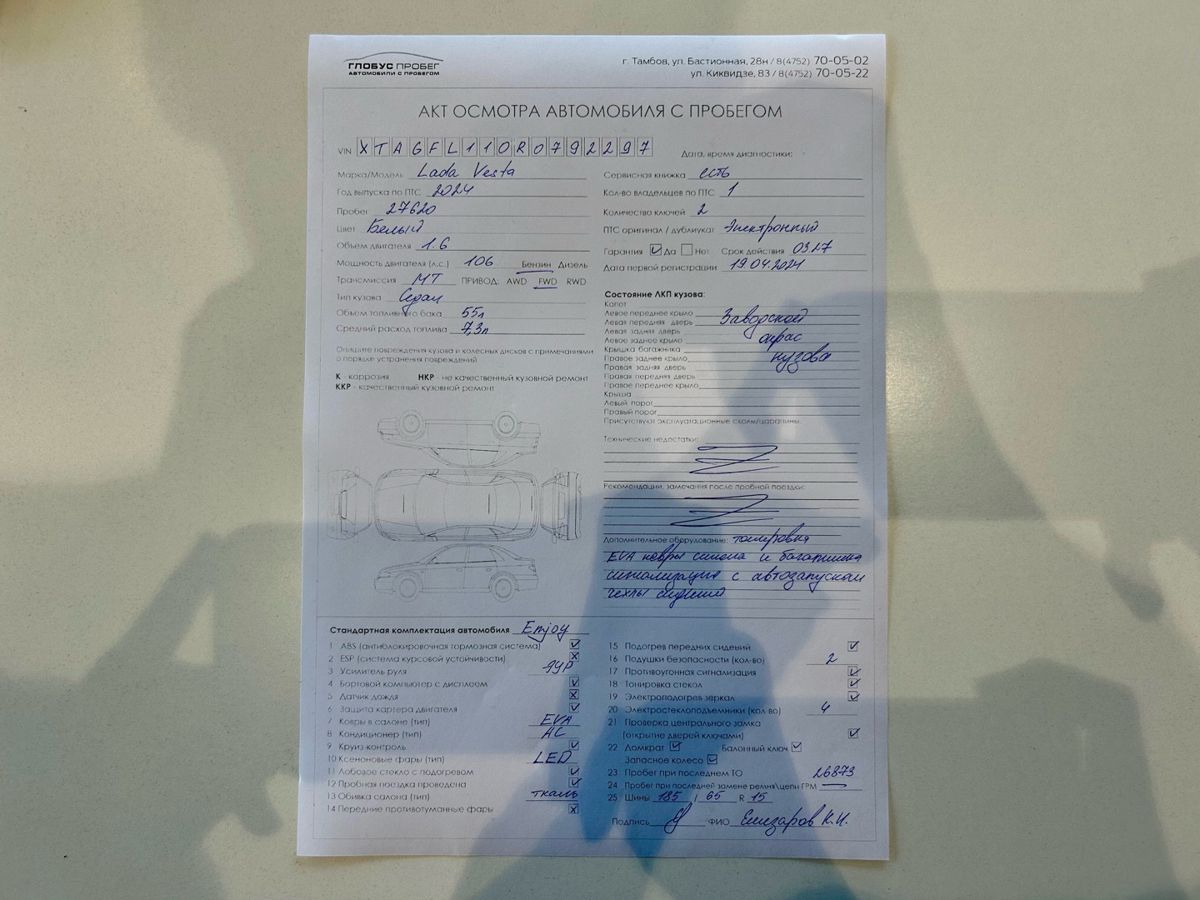 ГЛОБУС ПРОБЕГ
АВТОМОБИЛИ С ПРОБЕГОМ
г. Тамбов, ул. Бастионная, 28н / 8(4752) 70-05-02
ул. Киквидзе, 83 / 8(4752) 70-05-22
АКТ ОСМОТРА АВТОМОБИЛЯ С ПРОБЕГОМ
VIN XTAGFL110R0792297
Дата, время диагностики:
Марка/Модель Lada Vesta
Год выпуска по ПТС 2024
Пробег 27620
Цвет Белый
Объем двигателя 1.6
Мощность двигателя (л.с.) 106 Бензин Дизель
Трансмиссия МТ ПРИВОД: AWD FWD RWD
Тип кузова Седан
Объем топливного бака 55л
Средний расход топлива 7,3л
Опишите повреждения кузова и колесных дисков с примечаниями
о порядке устранения повреждений
К - коррозия НКР - не качественный кузовной ремонт
ККР - качественный кузовной ремонт
Сервисная книжка есть
Кол-во владельцев по ПТС 1
Количество ключей 2
ПТС оригинал / дубликат Электронный
Гарантия Да Нет Срок действия 03.27
Дата первой регистрации 19.04.2024
Состояние ЛКП кузова:
Капот
Левое переднее крыло Заводской
Левая передняя дверь
Левая задняя дверь окрас
Левое заднее крыло
Крышка багажника кузова
Правое заднее крыло
Правая задняя дверь
Правая передняя дверь
Правое переднее крыло
Крыша
Левый порог
Правый порог
Присутствуют эксплуатационные сколы/царапины.
Технические недостатки:
Рекомендации, замечания после пробной поездки:
Дополнительное оборудование: тонировка
EVA ковры салона и багажника
сигнализация с автозапуском
чехлы сидений
Стандартная комплектация автомобиля Enjoy
1 ABS (антиблокировочная тормозная система)
2 ESP (система курсовой устойчивости)
3 Усилитель руля ЭУР
4 Бортовой компьютер с дисплеем
5 Датчик дождя
6 Защита картера двигателя
7 Ковры в салоне (тип) EVA
8 Кондиционер (тип) AC
9 Круиз-контроль
10 Ксеноновые фары (тип) LED
11 Лобовое стекло с подогревом
12 Пробная поездка проведена
13 Обивка салона (тип) ткань
14 Передние противотуманные фары
15 Подогрев передних сидений
16 Подушки безопасности (кол-во) 2
17 Противоугонная сигнализация
18 Тонировка стекол
19 Электроподогрев зеркал
20 Электростеклоподъемники (кол во) 4
21 Проверка центрального замка
(открытие дверей ключами)
22 Домкрат Балонный ключ
Запасное колесо
23 Пробег при последнем ТО 26873
24 Пробег при последней замене ремня\цепи ГРМ
25 Шины 185 / 65 R 15
Подпись ФИО Елизаров К.И.